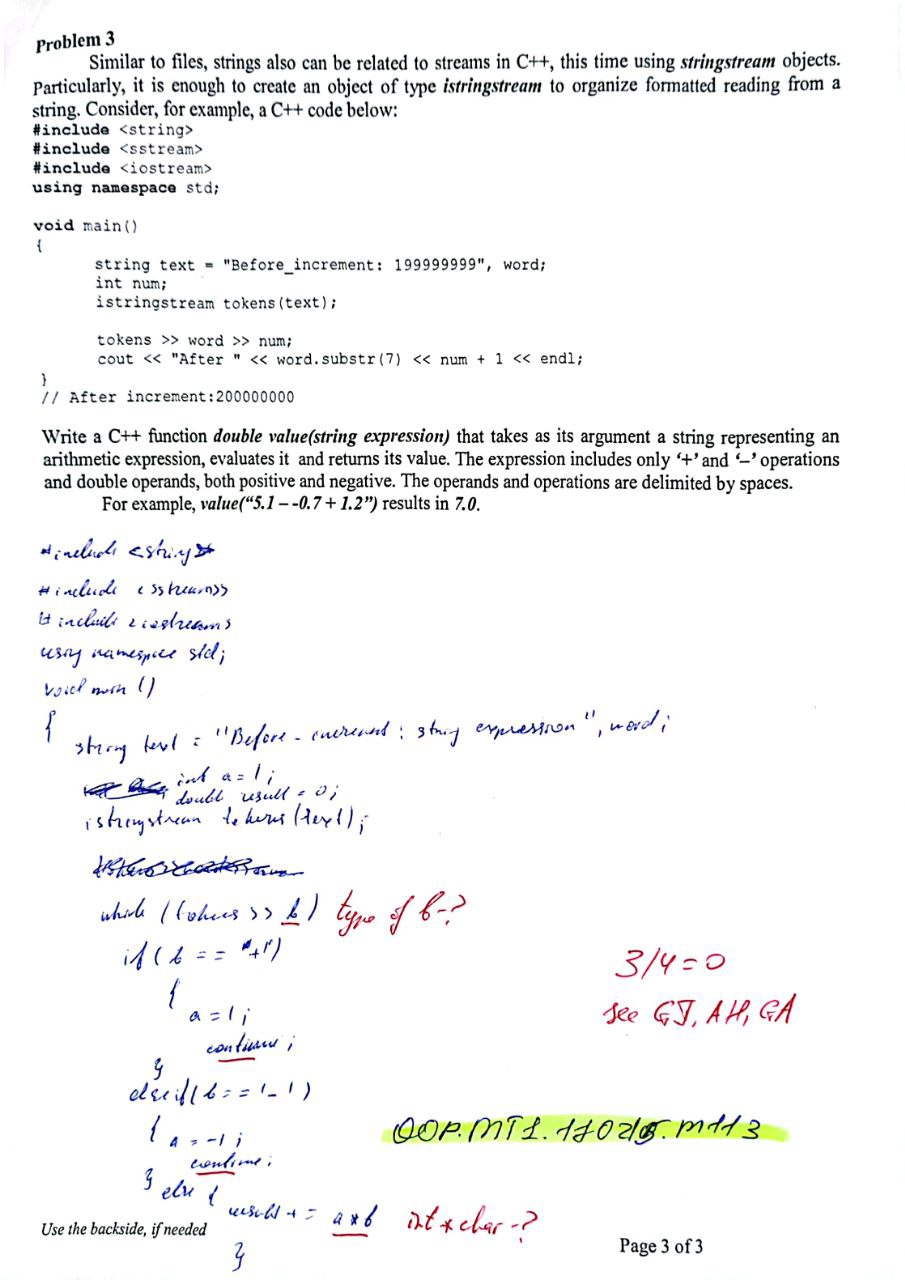 Problem 3
Similar to files, strings also can be related to streams in C++, this time using stringstream objects.
Particularly, it is enough to create an object of type istringstream to organize formatted reading from a
string. Consider, for example, a C++ code below:
#include <string>
#include <sstream>
#include <iostream>
using namespace std;
void main()
{
string text = "Before_increment: 199999999", word;
int num;
istringstream tokens(text);
tokens >> word >> num;
cout << "After " << word.substr(7) << num + 1 << endl;
}
// After increment:200000000
Write a C++ function double value(string expression) that takes as its argument a string representing an
arithmetic expression, evaluates it and returns its value. The expression includes only ‘+’ and ‘–’ operations
and double operands, both positive and negative. The operands and operations are delimited by spaces.
For example, value(“5.1 – -0.7 + 1.2”) results in 7.0.
#include <string>
#include <sstream>>
#include <iostream>
using namespace std;
void main ()
{
string text = "Before - increment : string expression", word;
int a = 1;
double result = 0;
istringstream tokens (text);
while (tokens >> b) type of b-?
if (b == "+")
{
3/4=0
a = 1;
see GJ, AH, GA
continue;
}
else if (b == '-')
{
OOP.MT1.110215.M113
a = -1;
continue;
} else {
result += a*b int * char -?
Use the backside, if needed
}
Page 3 of 3